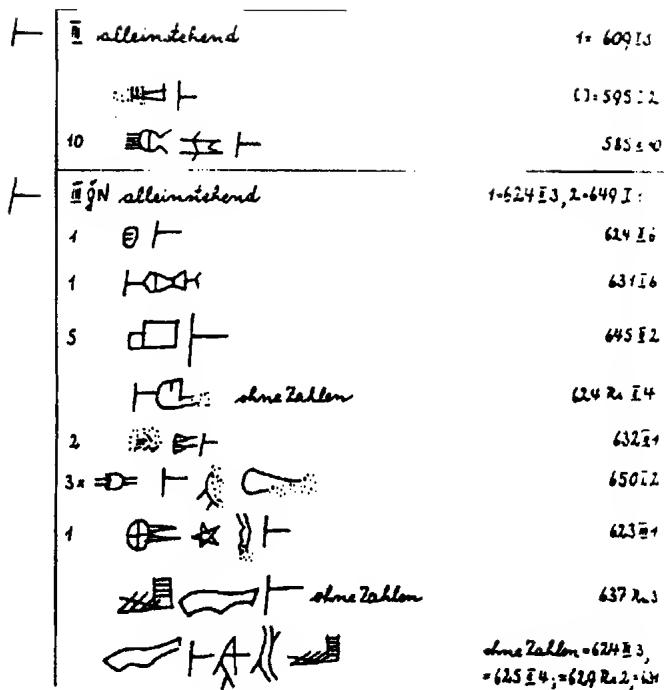 III alleinstehend 1= 609 I 3
( )= 595 I 2
10 585
III ĝN alleinstehend 1=624 II 3, 2=649 I
1 624 II 6
1 631 I 6
5 645 II 2
ohne Zahlen 624 Rs I 4
2 632
3 x 650 I 2
1 623 III 1
ohne Zahlen 637 Rs 3
ohne Zahlen =624 III 3,
=625 II 4; =629 Rs 2; =631